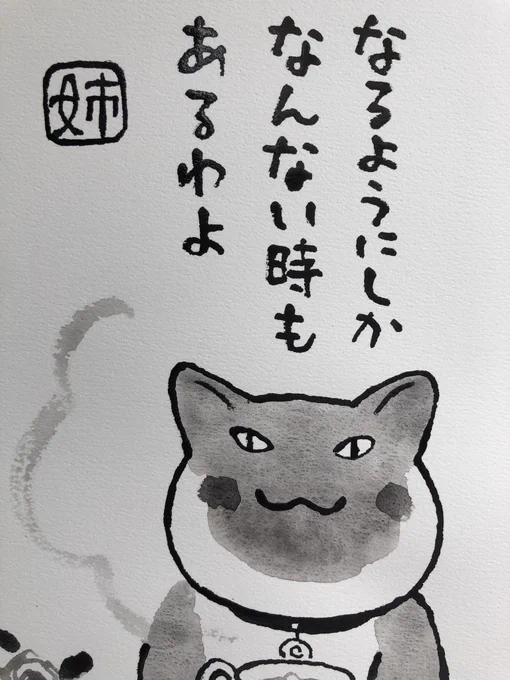 なるようにしか
なんない時も
あるわよ
姉